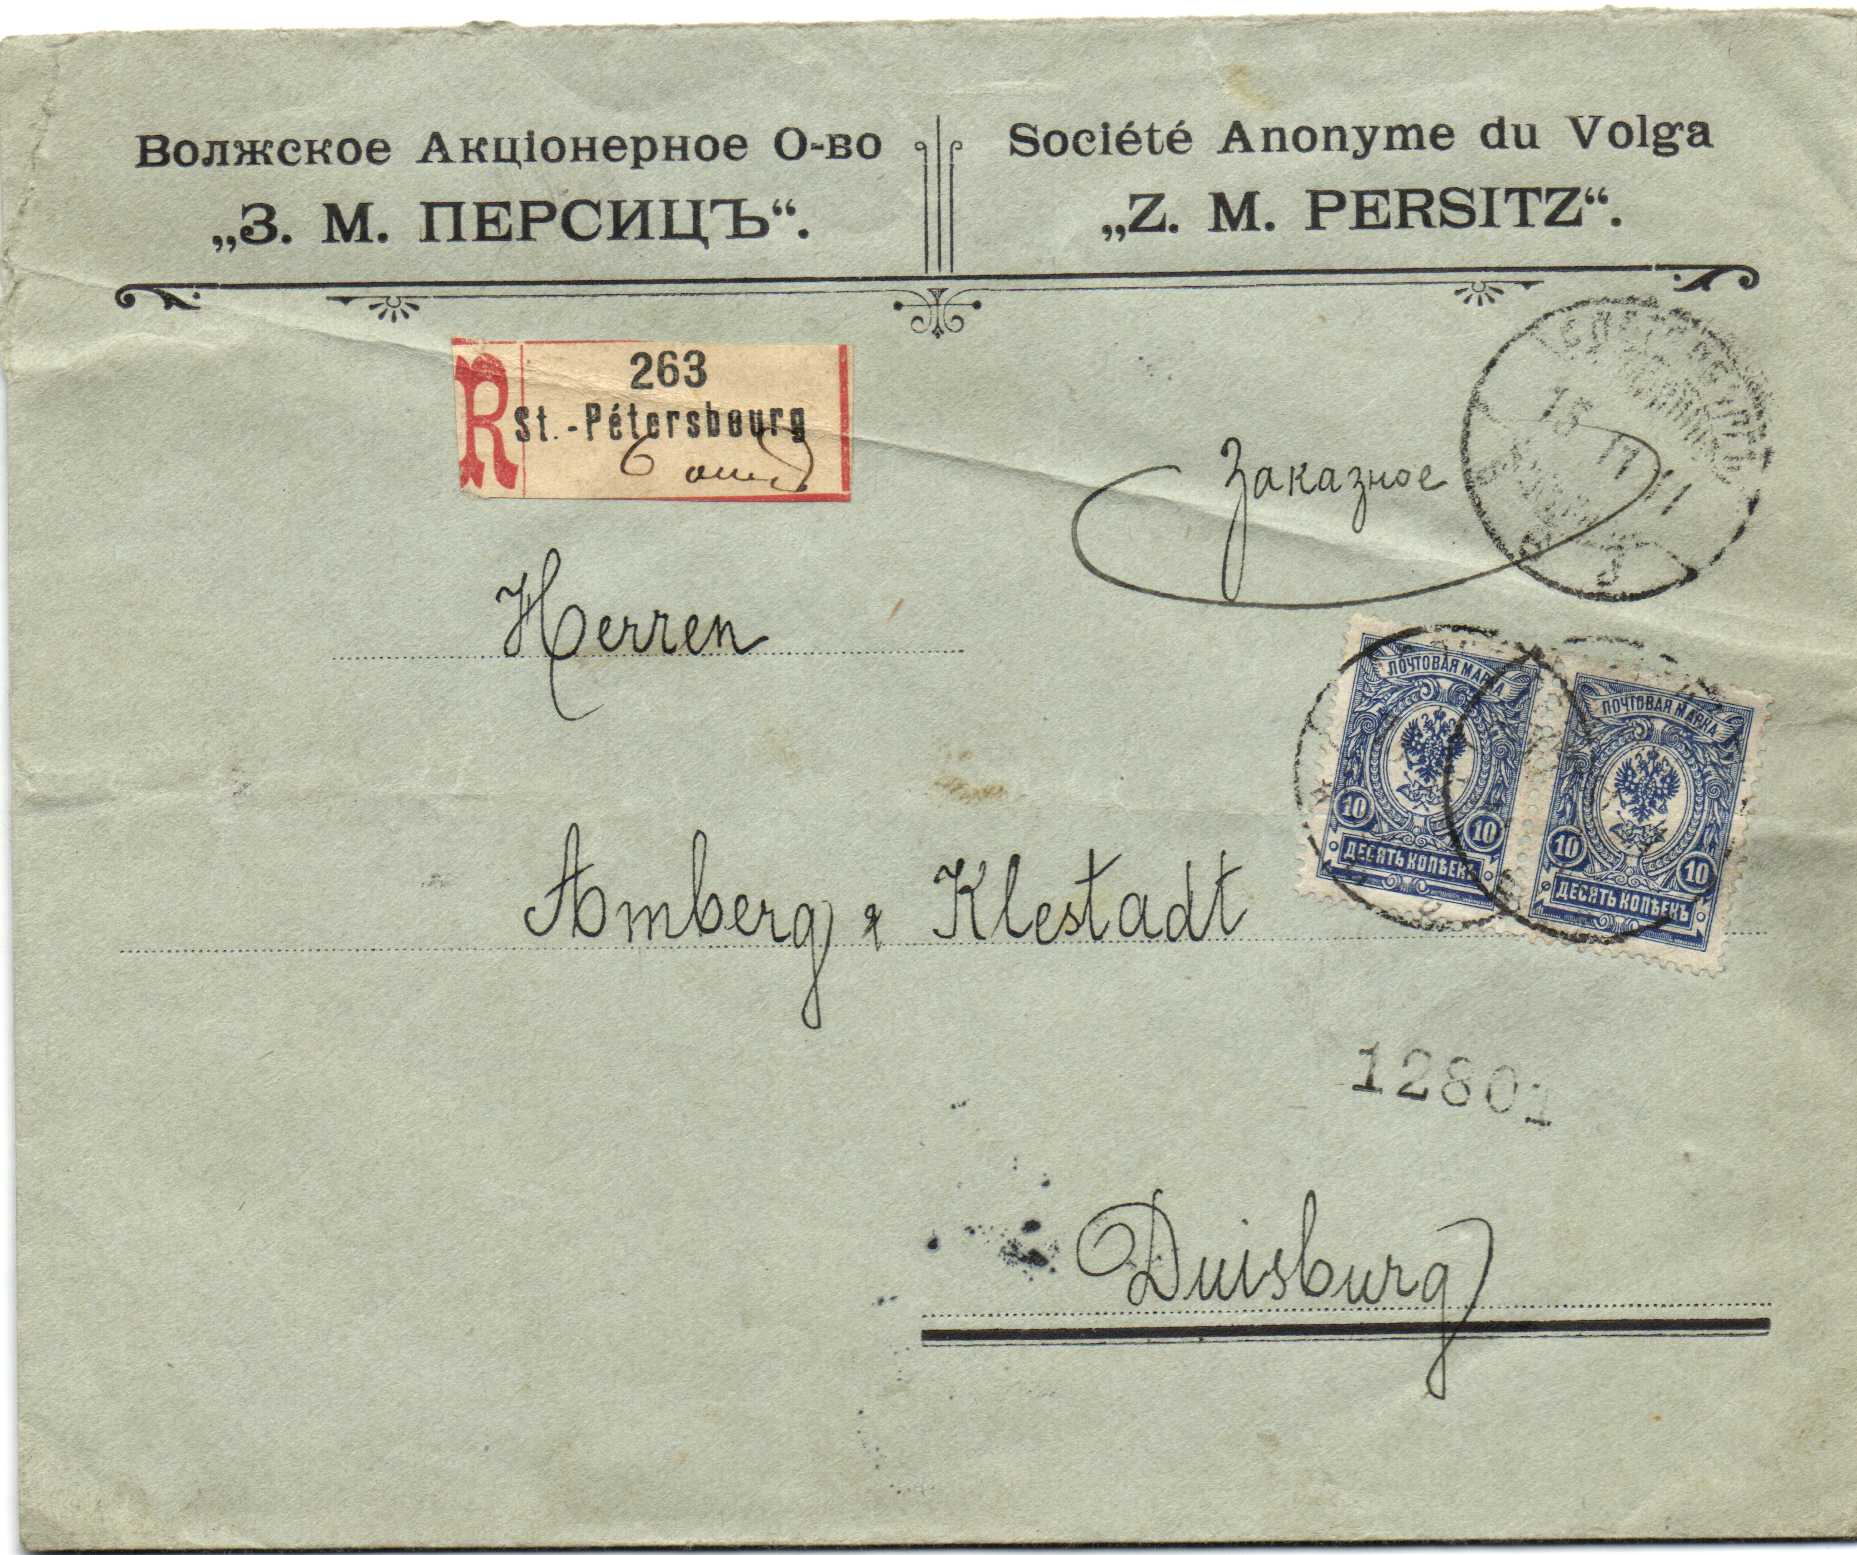 Волжское Акціонерное О-во
„З. М. ПЕРСИЦЪ“.
Société Anonyme du Volga
„Z. M. PERSITZ“.
R
263
St.-Pétersbourg
Заказное
Herren
ПОЧТОВАЯ МАРКА
10 10
ДЕСЯТЬ КОПѢЕКЪ
ПОЧТОВАЯ МАРКА
10 10
ДЕСЯТЬ КОПѢЕКЪ
Amberg & Klestadt
12801
Duisburg